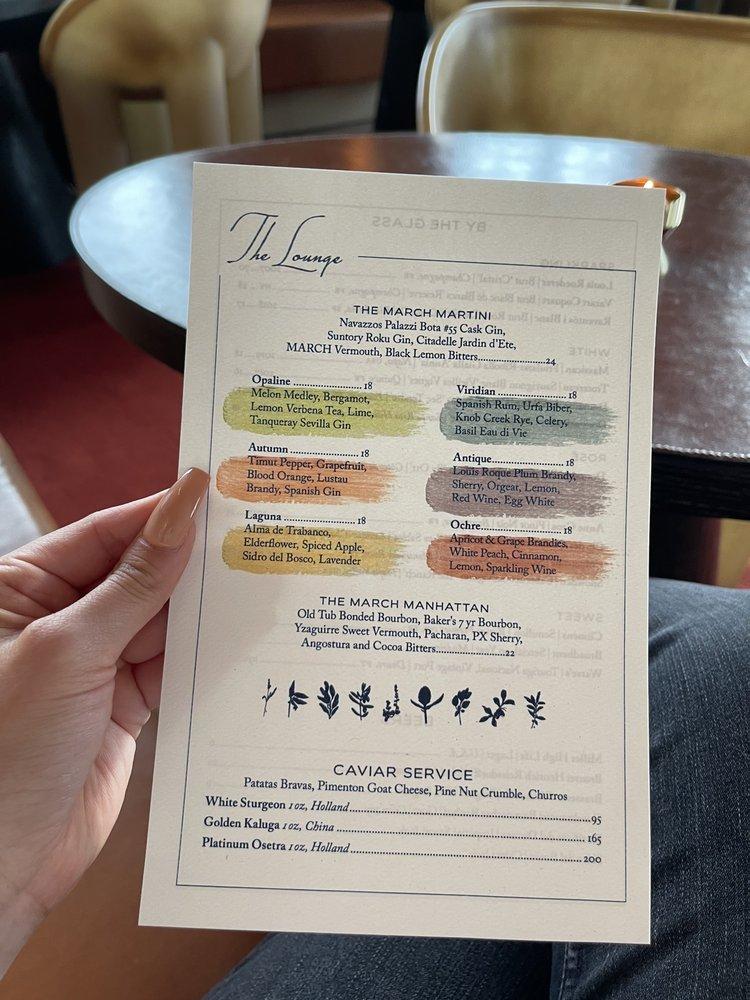 The Lounge
THE MARCH MARTINI
Navazzos Palazzi Bota #55 Cask Gin,
Suntory Roku Gin, Citadelle Jardin d'Ete,
MARCH Vermouth, Black Lemon Bitters..............................24
Opaline ........................... 18
Melon Medley, Bergamot,
Lemon Verbena Tea, Lime,
Tanqueray Sevilla Gin
Viridian ............................ 18
Spanish Rum, Urfa Biber,
Knob Creek Rye, Celery,
Basil Eau di Vie
Autumn ........................... 18
Timut Pepper, Grapefruit,
Blood Orange, Lustau
Brandy, Spanish Gin
Antique ............................ 18
Louis Roque Plum Brandy,
Sherry, Orgeat, Lemon,
Red Wine, Egg White
Laguna ........................... 18
Alma de Trabanco,
Elderflower, Spiced Apple,
Sidro del Bosco, Lavender
Ochre............................ 18
Apricot & Grape Brandies,
White Peach, Cinnamon,
Lemon, Sparkling Wine
THE MARCH MANHATTAN
Old Tub Bonded Bourbon, Baker's 7 yr Bourbon,
Yzaguirre Sweet Vermouth, Pacharan, PX Sherry,
Angostura and Cocoa Bitters..............................22
CAVIAR SERVICE
Patatas Bravas, Pimenton Goat Cheese, Pine Nut Crumble, Churros
White Sturgeon 1 oz, Holland..............................95
Golden Kaluga 1 oz, China ..............................165
Platinum Osetra 1 oz, Holland..............................200